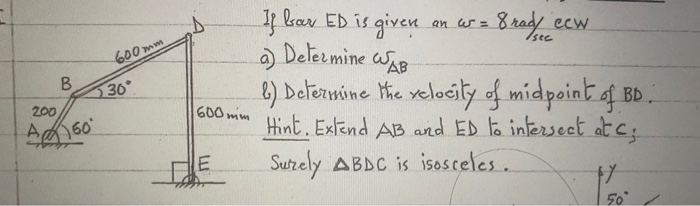 If bar ED is given an ω = 8 rad/sec ccw
a) Determine ω_AB
b) Determine the velocity of midpoint of BD.
Hint. Extend AB and ED to intersect at C;
Surely △BDC is isosceles.
D
600 mm
B
30°
200
600 mm
A
60°
E
y
50°